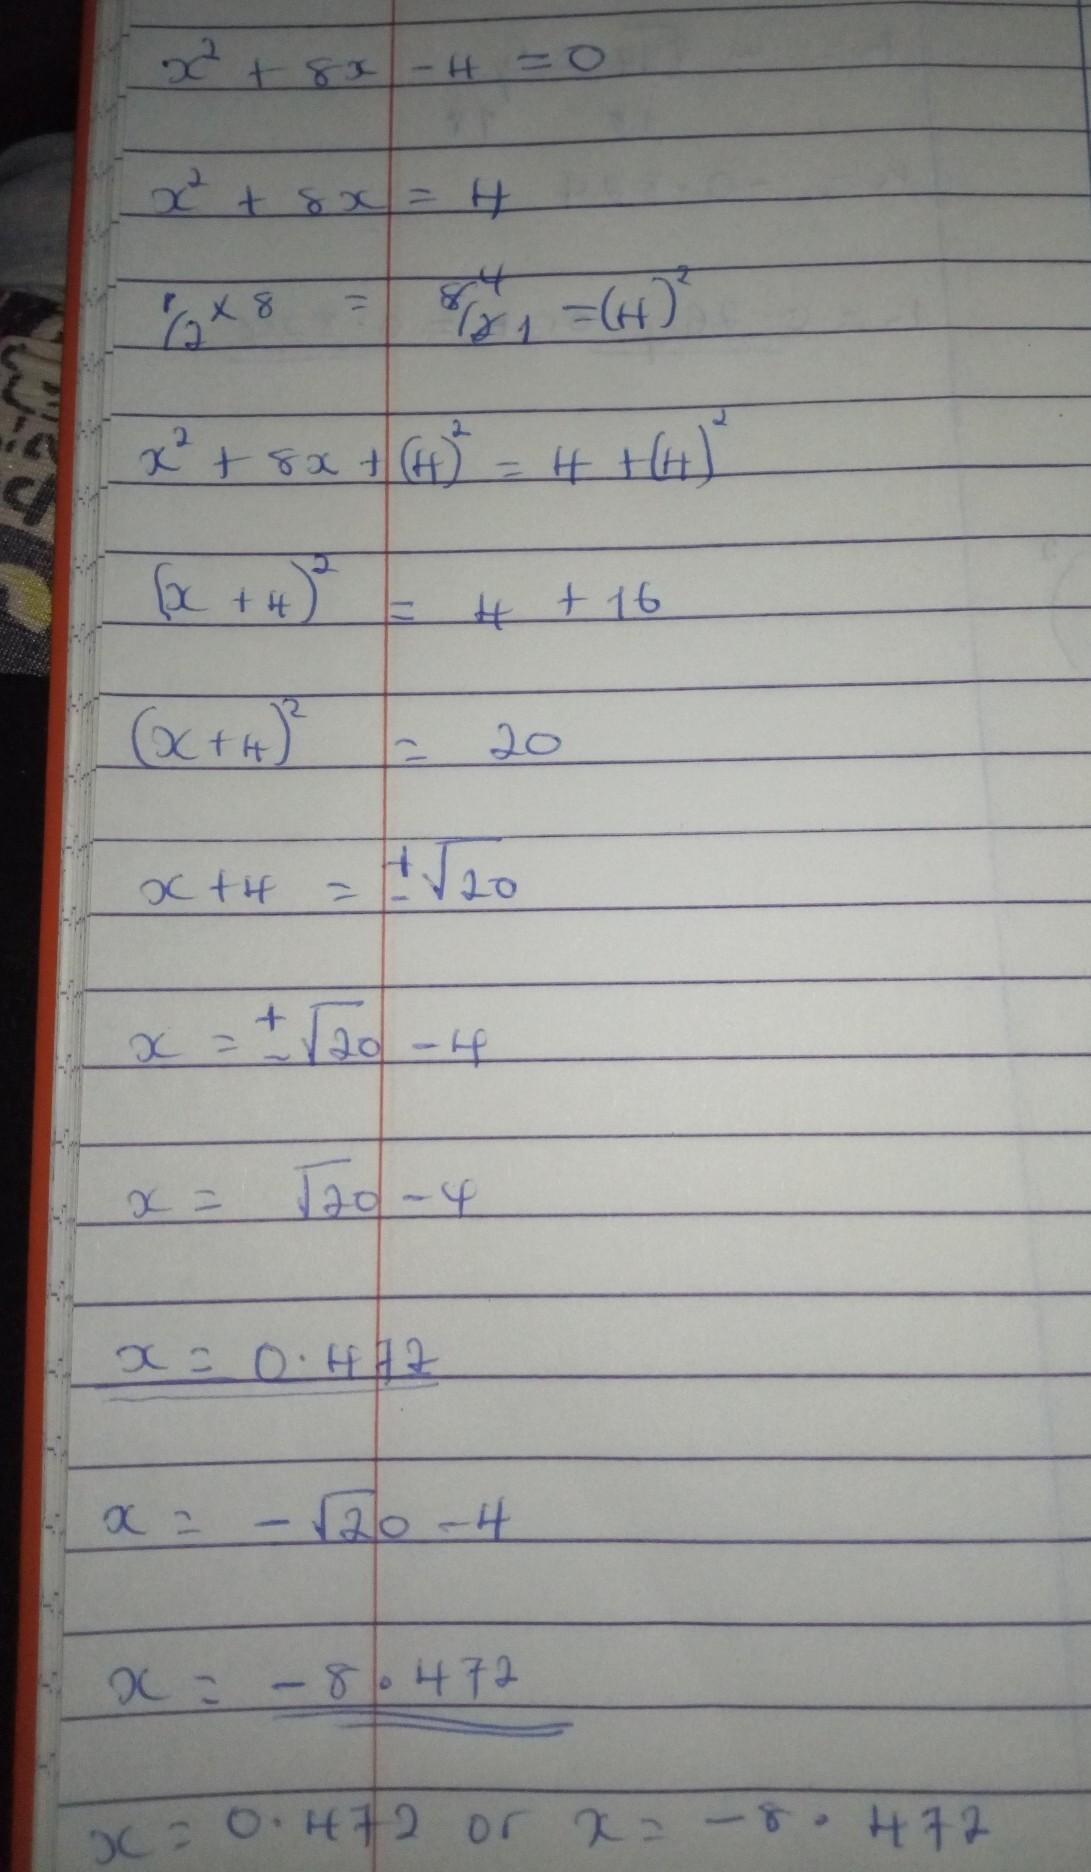 x² + 8x - 4 = 0
x² + 8x = 4
1/2 × 8 = 8⁴/2 1 = (4)²
x² + 8x + (4)² = 4 + (4)²
(x + 4)² = 4 + 16
(x + 4)² = 20
x + 4 = ±√20
x = ±√20 - 4
x = √20 - 4
x = 0.472
x = -√20 - 4
x = -8.472
x = 0.472 or x = -8.472